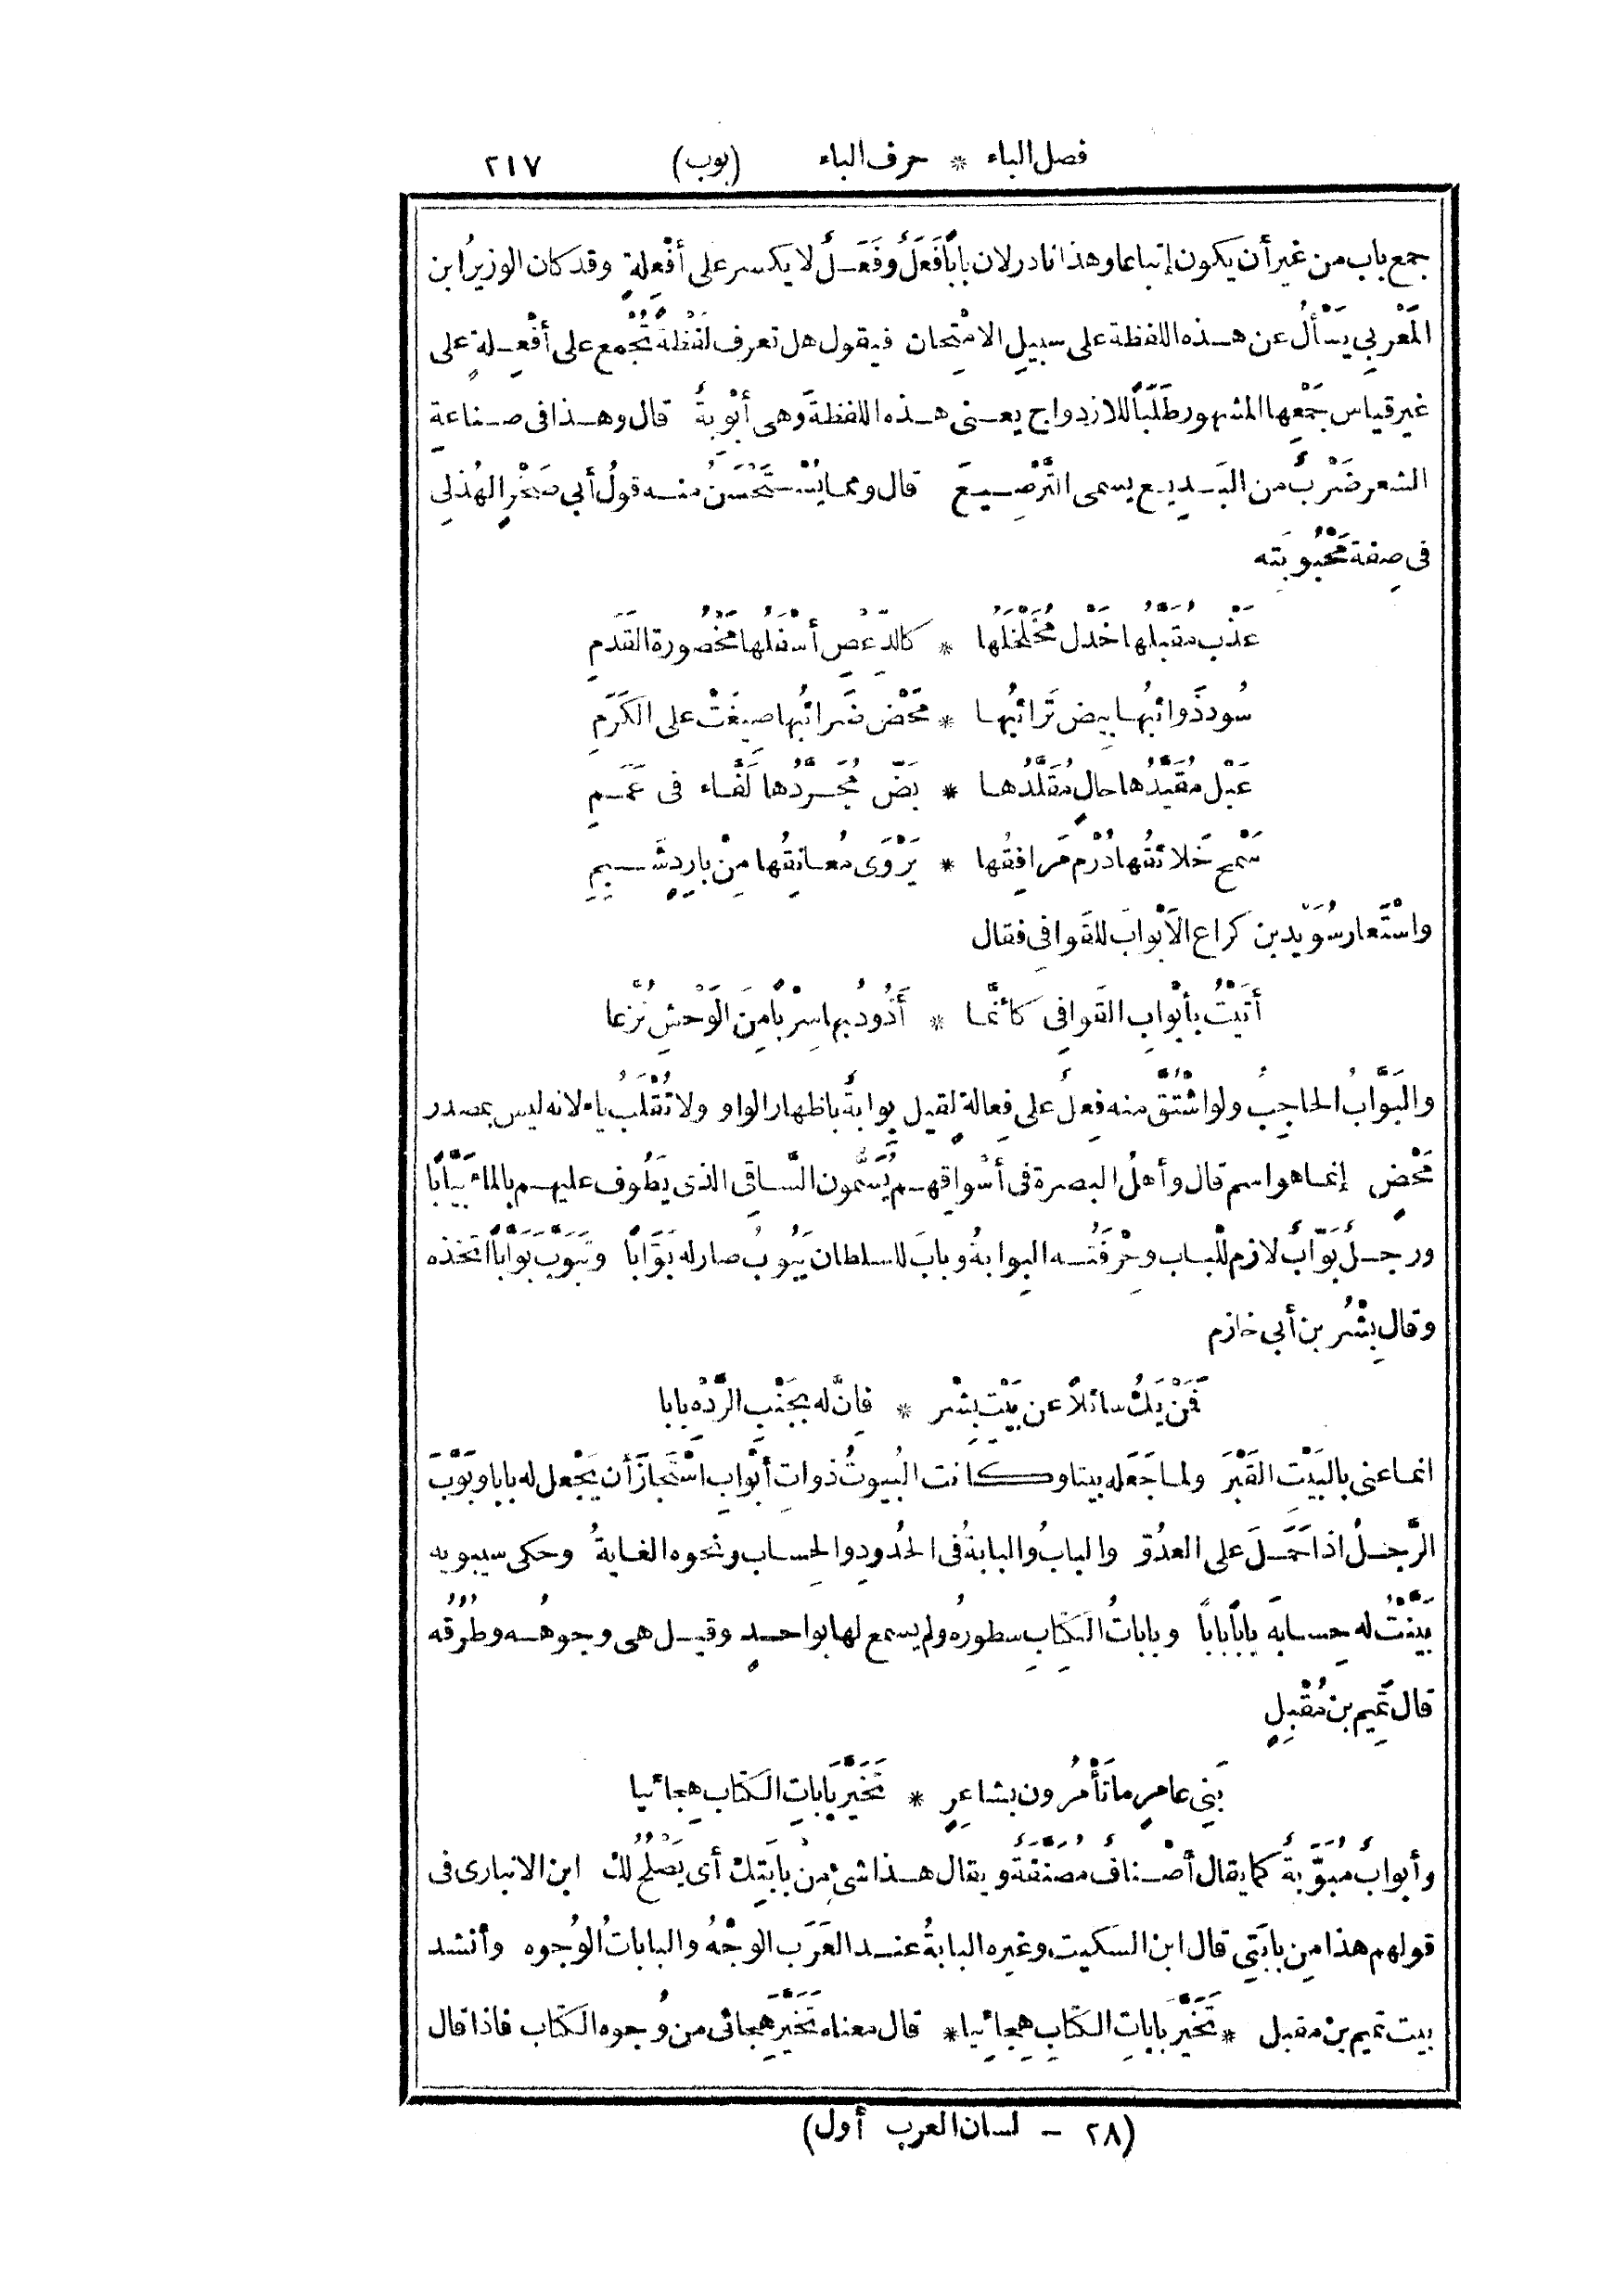 فصل الباء * حرف الباء (بوب) ٢١٧
جمع باب من غير أن يكون إتباعا وهذا نادر لان بابًا فَعَلٌ وفَعَلٌ لا يكسر على أفْعِلةٍ وقد كان الوزيرُ ابن
المَغْربي يَسْألُ عن هذه اللفظة على سبيلِ الامْتِحان فيقول هل تعرف لَفْظةً تُجْمع على أفْعِلةٍ على
غير قياس جَمْعِها المشهور طَلَبًا للازدواج يعنى هذه اللفظةَ وهى أبْوِبةٌ قال وهذا فى صناعةِ
الشعر ضَرْبٌ من البَدِيع يسمى التَّرْصِيعَ قال ومما يُسْتَحْسَنُ منه قولُ أبي صَخْرٍ الهُذلِي
فى صِفة مَحْبُوبَتِه
عَذْبٌ مُقَبَّلُها خَدْلٌ مُخَلْخَلُها * كالدِّعْصِ أسْفَلُها مَخْصُورة القَدَمِ
سُودٌ ذَوائبُها بِيض تَرائبُها * مَحْض ضَرائبُها صِيغَتْ على الكَرَمِ
عَبْلٌ مُقَيَّدُها حالٍ مُقَلَّدُها * بَضّ مُجَرَّدُها لَفَّاء فى عَمَمِ
سَمْح خَلائقُها دُرْم مَرافِقُها * يَرْوَى مُعانِقُها مِنْ بارِدٍ شَبِمِ
واسْتَعار سُوَيْد بن كراع الاَبْوابَ للقَوافِى فقال
أتَيْتُ بأبْوابِ القَوافِى كأنَّما * أَذُودُ بها سِرْبًا مِنَ الوَحْشِ نُزَّعا
والبَوَّابُ الحاجِبُ ولو اشْتُقَّ منه فِعلٌ على فِعالةٍ لقيل بِوابةٌ باظهار الواو ولا تُقْلَبُ ياء لانه ليس بمصدر
مَحْضٍ إنما هو اسم قال وأهلُ البصرة فى أسْواقِهم يُسَمُّون السَّاقِى الذى يَطُوف عليهم بالماء بَيَّابًا
ورجلٌ بَوّابٌ لازم للْباب وحِرْفَتُه البِوابةُ وبابَ للسلطان يَبُوبُ صار له بَوَّابًا وتَبَوَّبَ بَوَّابًا اتخذه
وقال بِشْرُ بن أبي خازم
فَمَنْ يَكُ سائلاً عن بَيْتِ بِشْرٍ * فاِنَّ له بجَنْبِ الرَّدْهِ بابا
انما عنى بالبَيْتِ القَبْرَ ولما جَعَله بيتا وكانت البُيوتُ ذواتِ أبْوابٍ اسْتَجازَ أن يَجْعل له بابا وبَوَّبَ
الرَّجلُ اذا حَمَلَ على العدُوّ والبابُ والبابةُ فى الحُدودِ والحِساب ونحوه الغايةُ وحكى سيبويه
بَيَّنْتُ له حِسابَه بابًا بابًا وباباتُ الكِتابِ سطورُه ولم يسمع لها بواحدٍ وقيل هى وجوهُه وطُرُقُه
قال تَمِيم بن مُقْبِلٍ
بَنِى عامرٍ ما تَأْمُرون بشاعِرٍ * تَخَيَّر باباتِ الكتابِ هِجائيا
وأبوابٌ مُبَوَّبةٌ كما يقال أصْنافٌ مُصَنَّفةٌ ويقال هذا شىْءٌ مِنْ بابَتِكَ أى يَصْلُحُ لكَ ابن الانبارى فى
قولهم هذا مِن بابَتِي قال ابن السكيت وغيره البابةُ عند العَرَب الوجْهُ والباباتُ الوُجوه وأنشد
بيت تميم بن مقبل * تَخَيَّر باباتِ الكتابِ هِجائِيا* قال معناه تَخَيَّرَ هِجائى من وُجوه الكتاب فاذا قال
(٢٨ - لسان العرب أول)